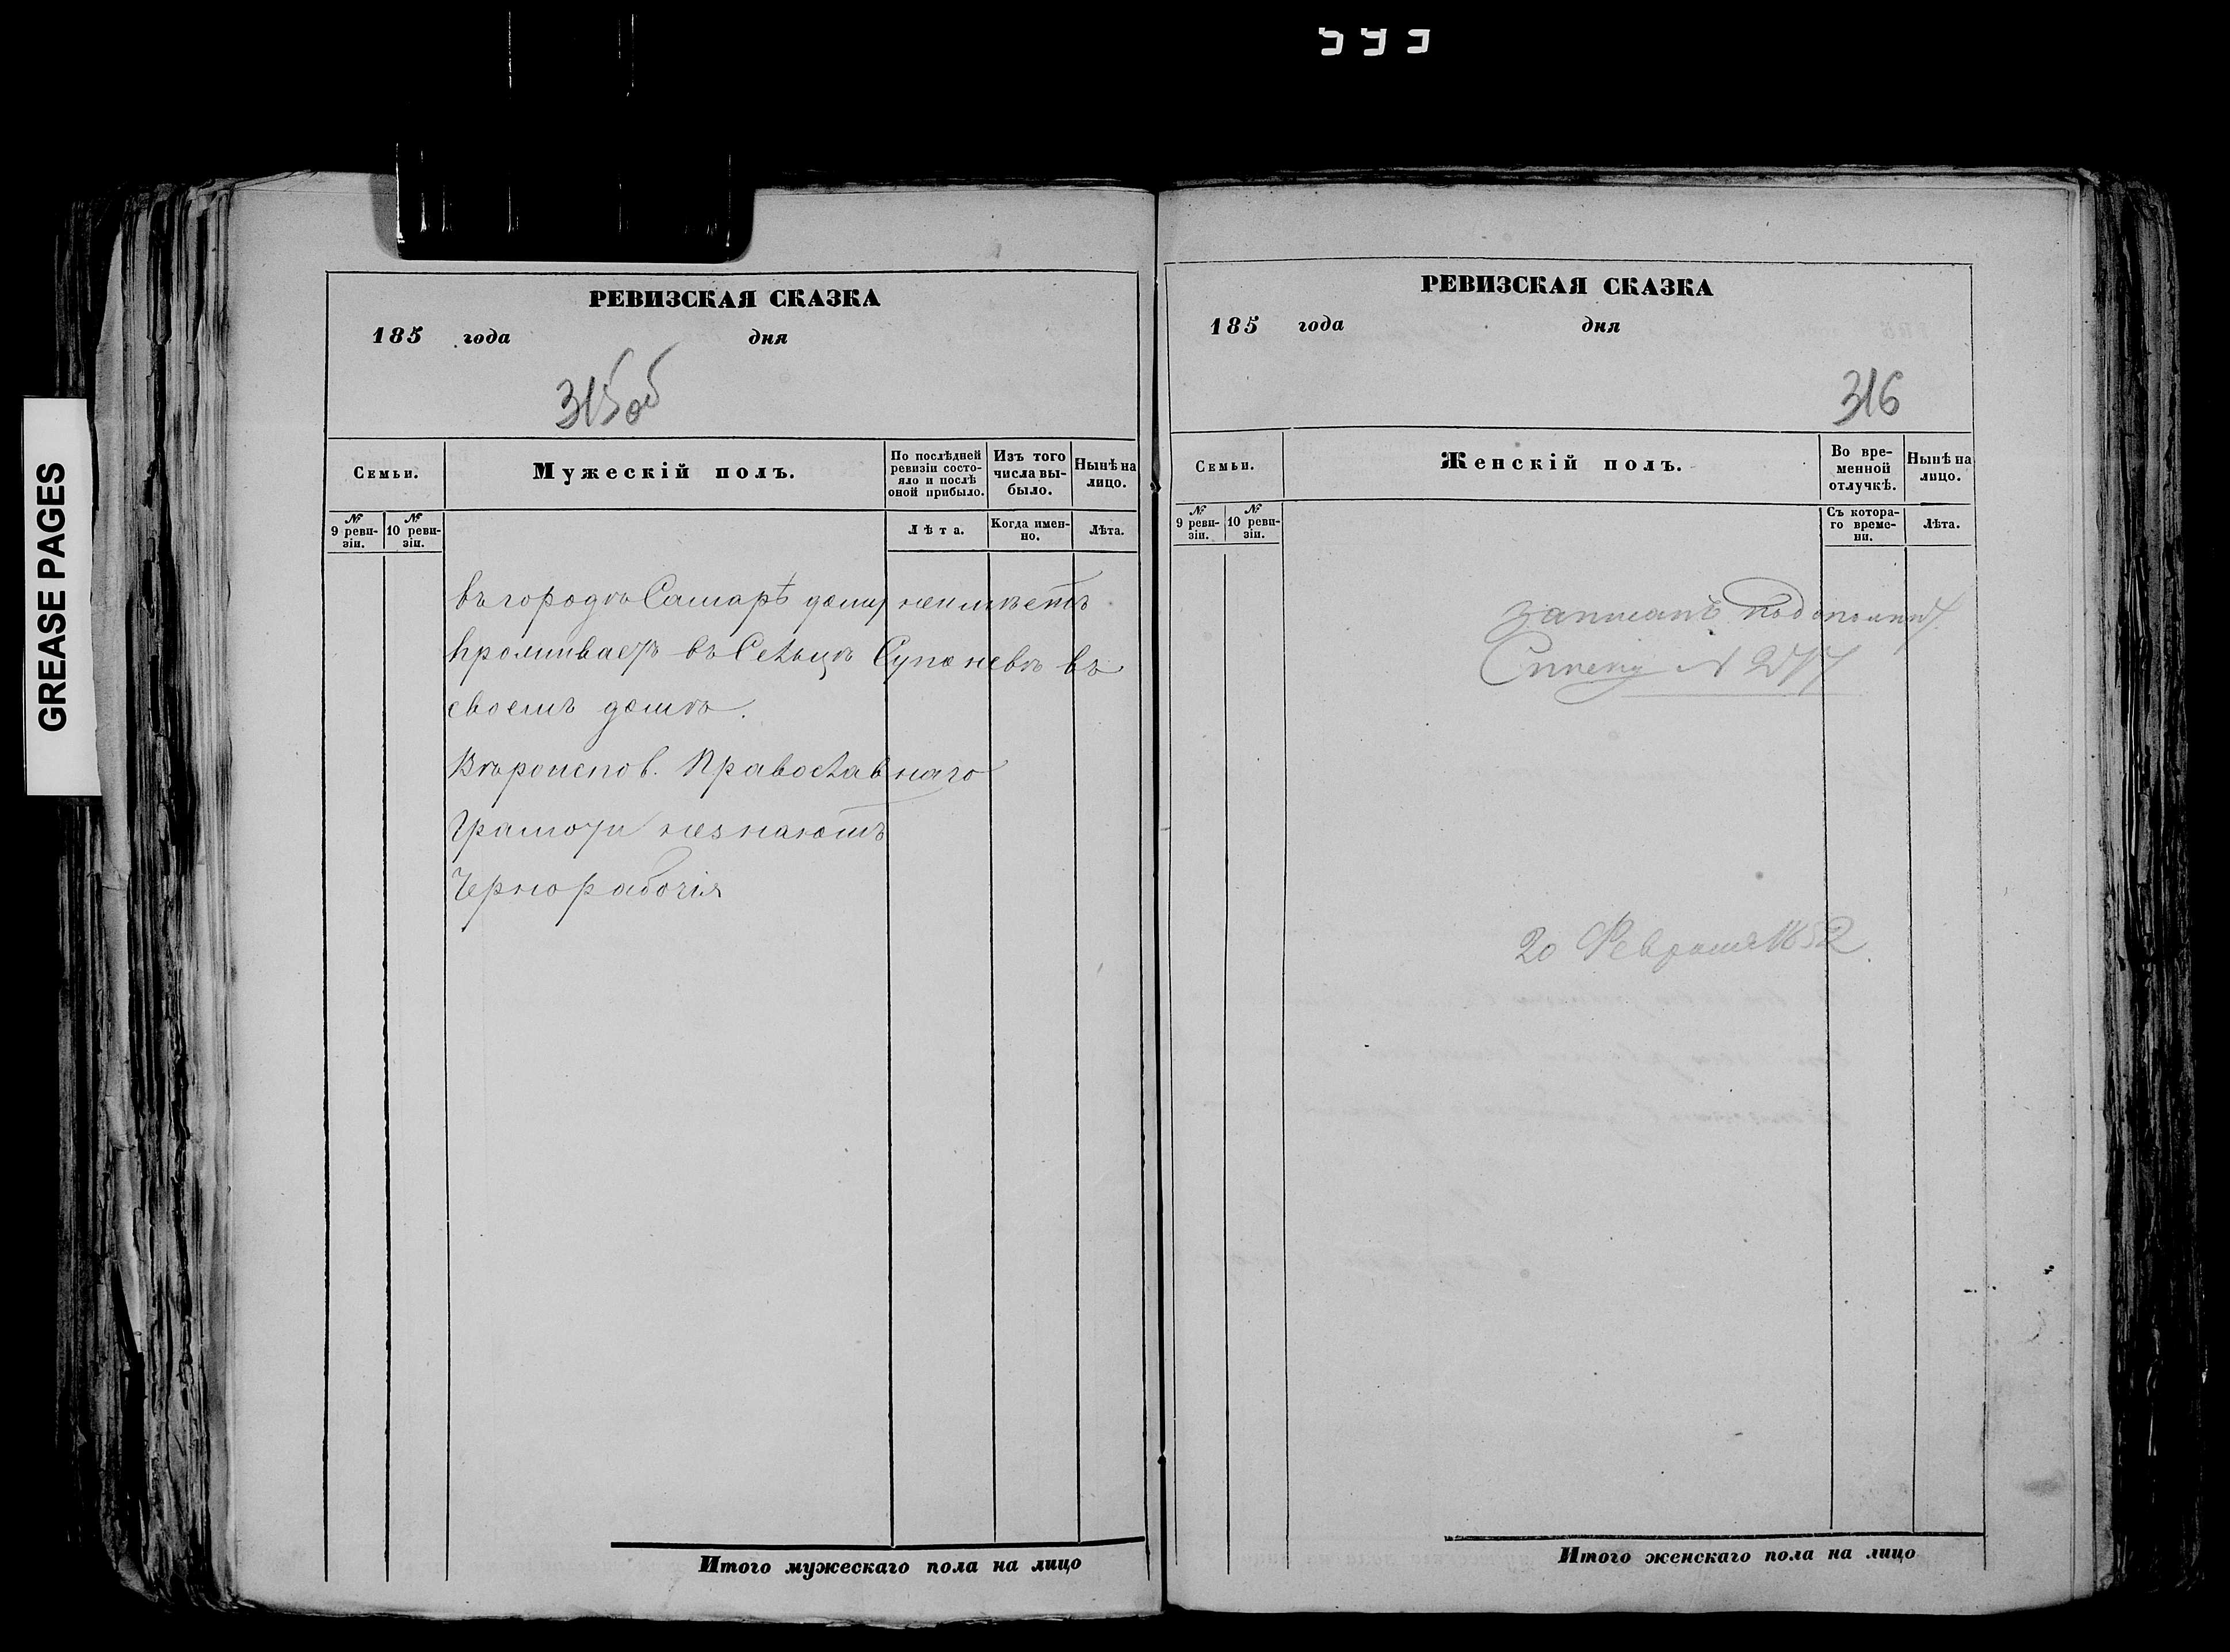 GREASE PAGES
РЕВИЗСКАЯ СКАЗКА
185 года дня
315об
Семьи.
Мужескій полъ.
По послѣдней ревизіи состояло и послѣ оной прибыло.
Изъ того числа выбыло.
Нынѣ на лицо.
№ 9 ревизіи.
№ 10 ревизіи.
Лѣта.
Когда именно.
Лѣта.
въ городѣ Самарѣ дому неимѣетъ
проживаетъ въ Сельцѣ Супоневѣ въ
своемъ домѣ.
Вѣроиспов. Православнаго
Грамоти незнаютъ
Чернорабочія
Итого мужескаго пола на лицо
РЕВИЗСКАЯ СКАЗКА
185 года дня
316
Семьи.
Женскій полъ.
Во временной отлучкѣ.
Нынѣ на лицо.
№ 9 ревизіи.
№ 10 ревизіи.
Съ котораго времени.
Лѣта.
Записанъ
Списку №
20 Февраля 1852
Итого женскаго пола на лицо